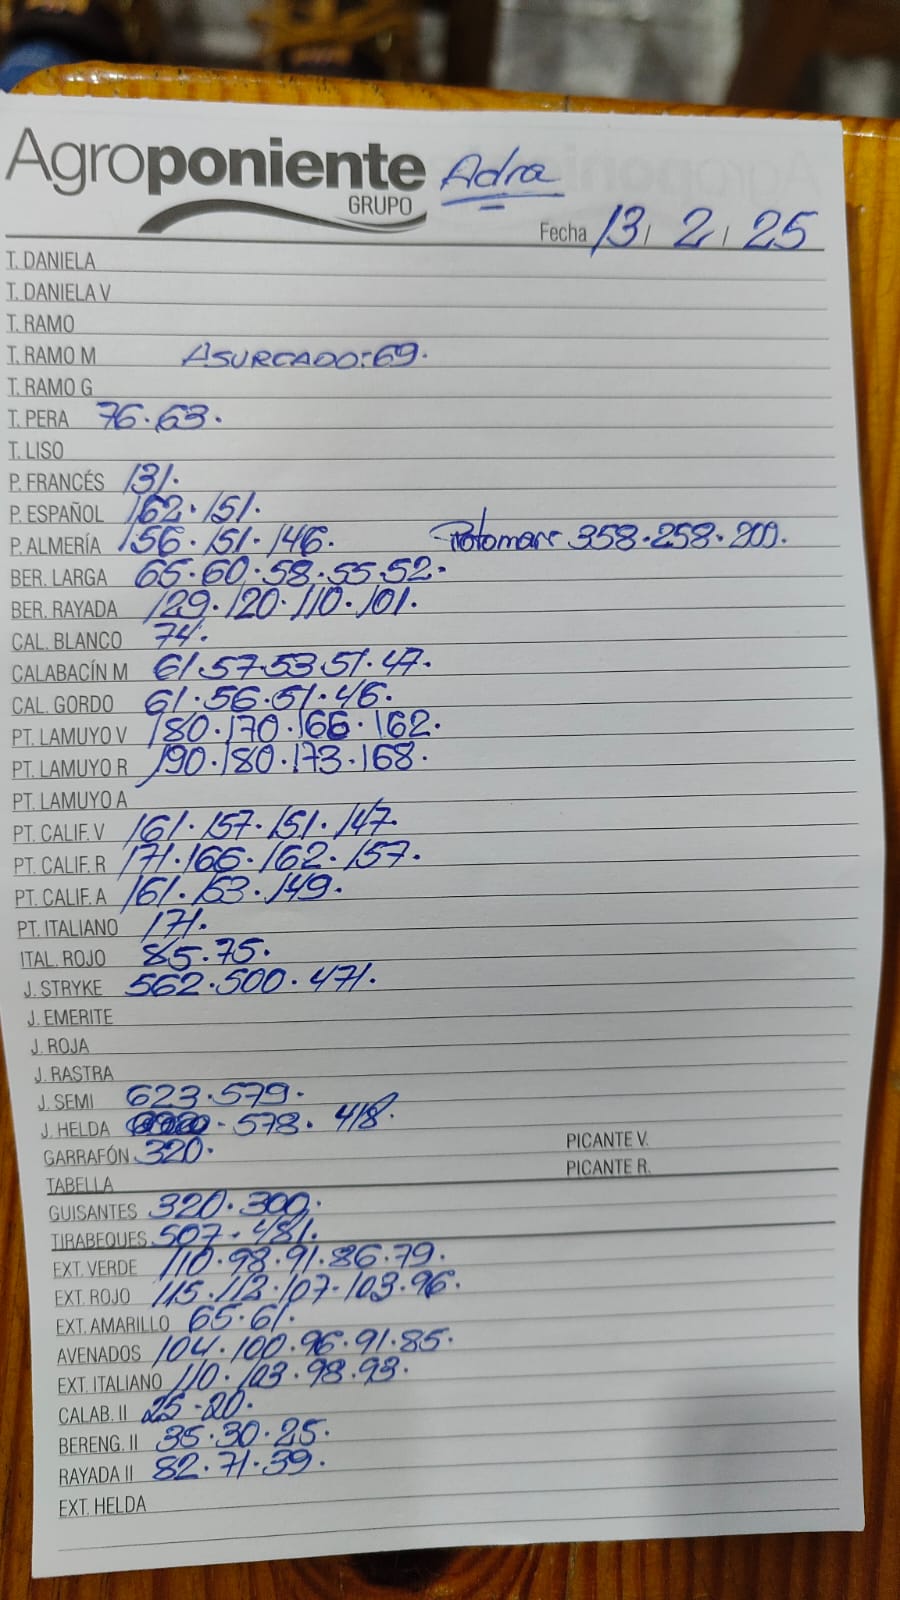 Agroponiente Adra
GRUPO
Fecha 13/ 2 / 25
T. DANIELA
T. DANIELA V
T. RAMO
T. RAMO M ASURCADO: 69.
T. RAMO G
T. PERA 76.63.
T. LISO
P. FRANCÉS 131.
P. ESPAÑOL 162.151.
P. ALMERÍA 156.151.146. 358.258.200.
BER. LARGA 65.60.58.55.52.
BER. RAYADA 129.120.110.101.
CAL. BLANCO 74.
CALABACÍN M 61.57.53.51.47.
CAL. GORDO 61.56.51.46.
PT. LAMUYO V 180.170.166.162.
PT. LAMUYO R 190.180.173.168.
PT. LAMUYO A
PT. CALIF. V 161.157.151.147.
PT. CALIF. R 171.166.162.157.
PT. CALIF. A 161.153.149.
PT. ITALIANO 171.
ITAL. ROJO 85.75.
J. STRYKE 562.500.471.
J. EMERITE
J. ROJA
J. RASTRA
J. SEMI 623.579.
J. HELDA . 578. 418.
GARRAFÓN 320. PICANTE V.
TABELLA PICANTE R.
GUISANTES 320.300.
TIRABEQUES 507.481.
EXT. VERDE 110.98.91.86.79.
EXT. ROJO 115.112.107.103.96.
EXT. AMARILLO 65.61.
AVENADOS 104.100.96.91.85.
EXT. ITALIANO 110.103.98.93.
CALAB. II 25.20.
BERENG. II 35.30.25.
RAYADA II 82.71.39.
EXT. HELDA